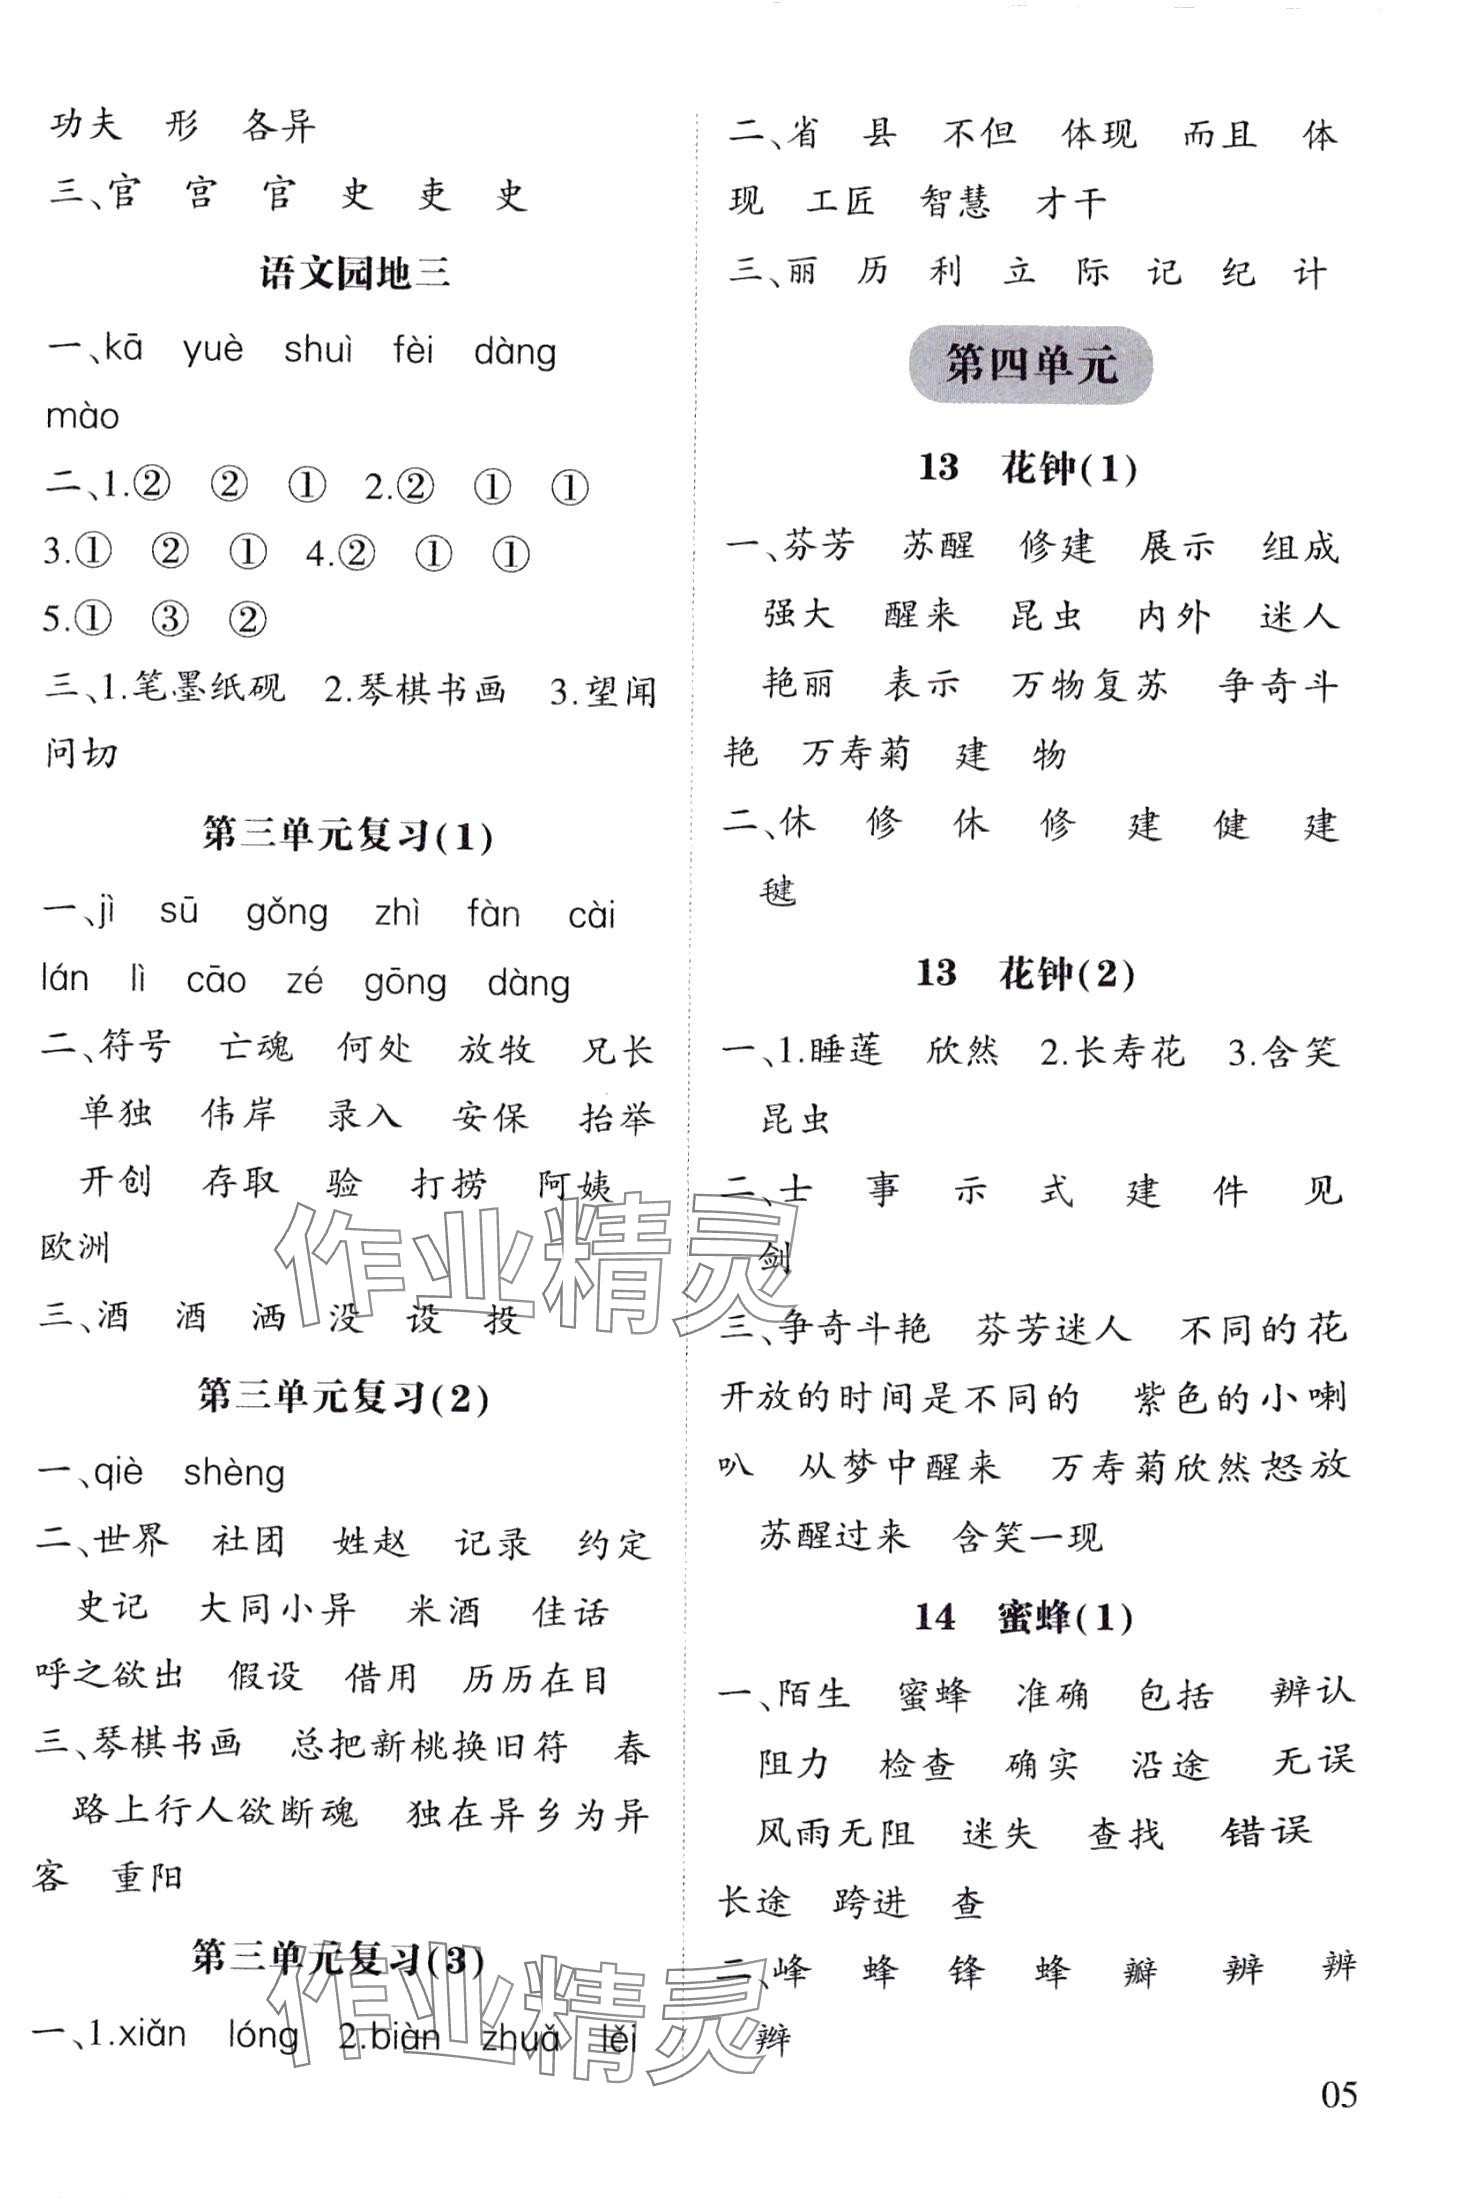 功夫 形 各异
三、官 宫 官 史 吏 史
语文园地三
一、kā yuè shuì fèi dàng
mào
二、1.② ② ① 2.② ① ①
3.① ② ① 4.② ① ①
5.① ③ ②
三、1.笔墨纸砚 2.琴棋书画 3.望闻
问切
第三单元复习(1)
一、jì sū gǒng zhì fàn cài
lán lì cāo zé gōng dàng
二、符号 亡魂 何处 放牧 兄长
单独 伟岸 录入 安保 抬举
开创 存取 验 打捞 阿姨
欧洲
三、酒 酒 洒 没 设 投
第三单元复习(2)
一、qiè shèng
二、世界 社团 姓赵 记录 约定
史记 大同小异 米酒 佳话
呼之欲出 假设 借用 历历在目
三、琴棋书画 总把新桃换旧符 春
路上行人欲断魂 独在异乡为异
客 重阳
第三单元复习(3)
一、1.xiǎn lóng 2.biàn zhuǎ lěi
二、省 县 不但 体现 而且 体
现 工匠 智慧 才干
三、丽 历 利 立 际 记 纪 计
第四单元
13 花钟(1)
一、芬芳 苏醒 修建 展示 组成
强大 醒来 昆虫 内外 迷人
艳丽 表示 万物复苏 争奇斗
艳 万寿菊 建 物
二、休 修 休 修 建 健 建
毽
13 花钟(2)
一、1.睡莲 欣然 2.长寿花 3.含笑
昆虫
二、士 事 示 式 建 件 见
剑
三、争奇斗艳 芬芳迷人 不同的花
开放的时间是不同的 紫色的小喇
叭 从梦中醒来 万寿菊欣然怒放
苏醒过来 含笑一现
14 蜜蜂(1)
一、陌生 蜜蜂 准确 包括 辨认
阻力 检查 确实 沿途 无误
风雨无阻 迷失 查找 错误
长途 跨进 查
二、峰 蜂 锋 蜂 瓣 辨 辨
辫
05
作业精灵
作业精灵